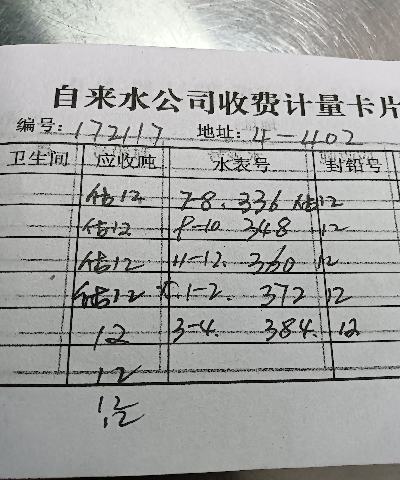 自来水公司收费计量卡片
编号: 172117 地址: 4-402
卫生间 应收吨 水表号 封铅号
估12 7-8. 336 估12
估12 9-10 348 12
估12 11-12. 360 12
估12 1-2. 372 12
12 3-4. 384. 12
12
12